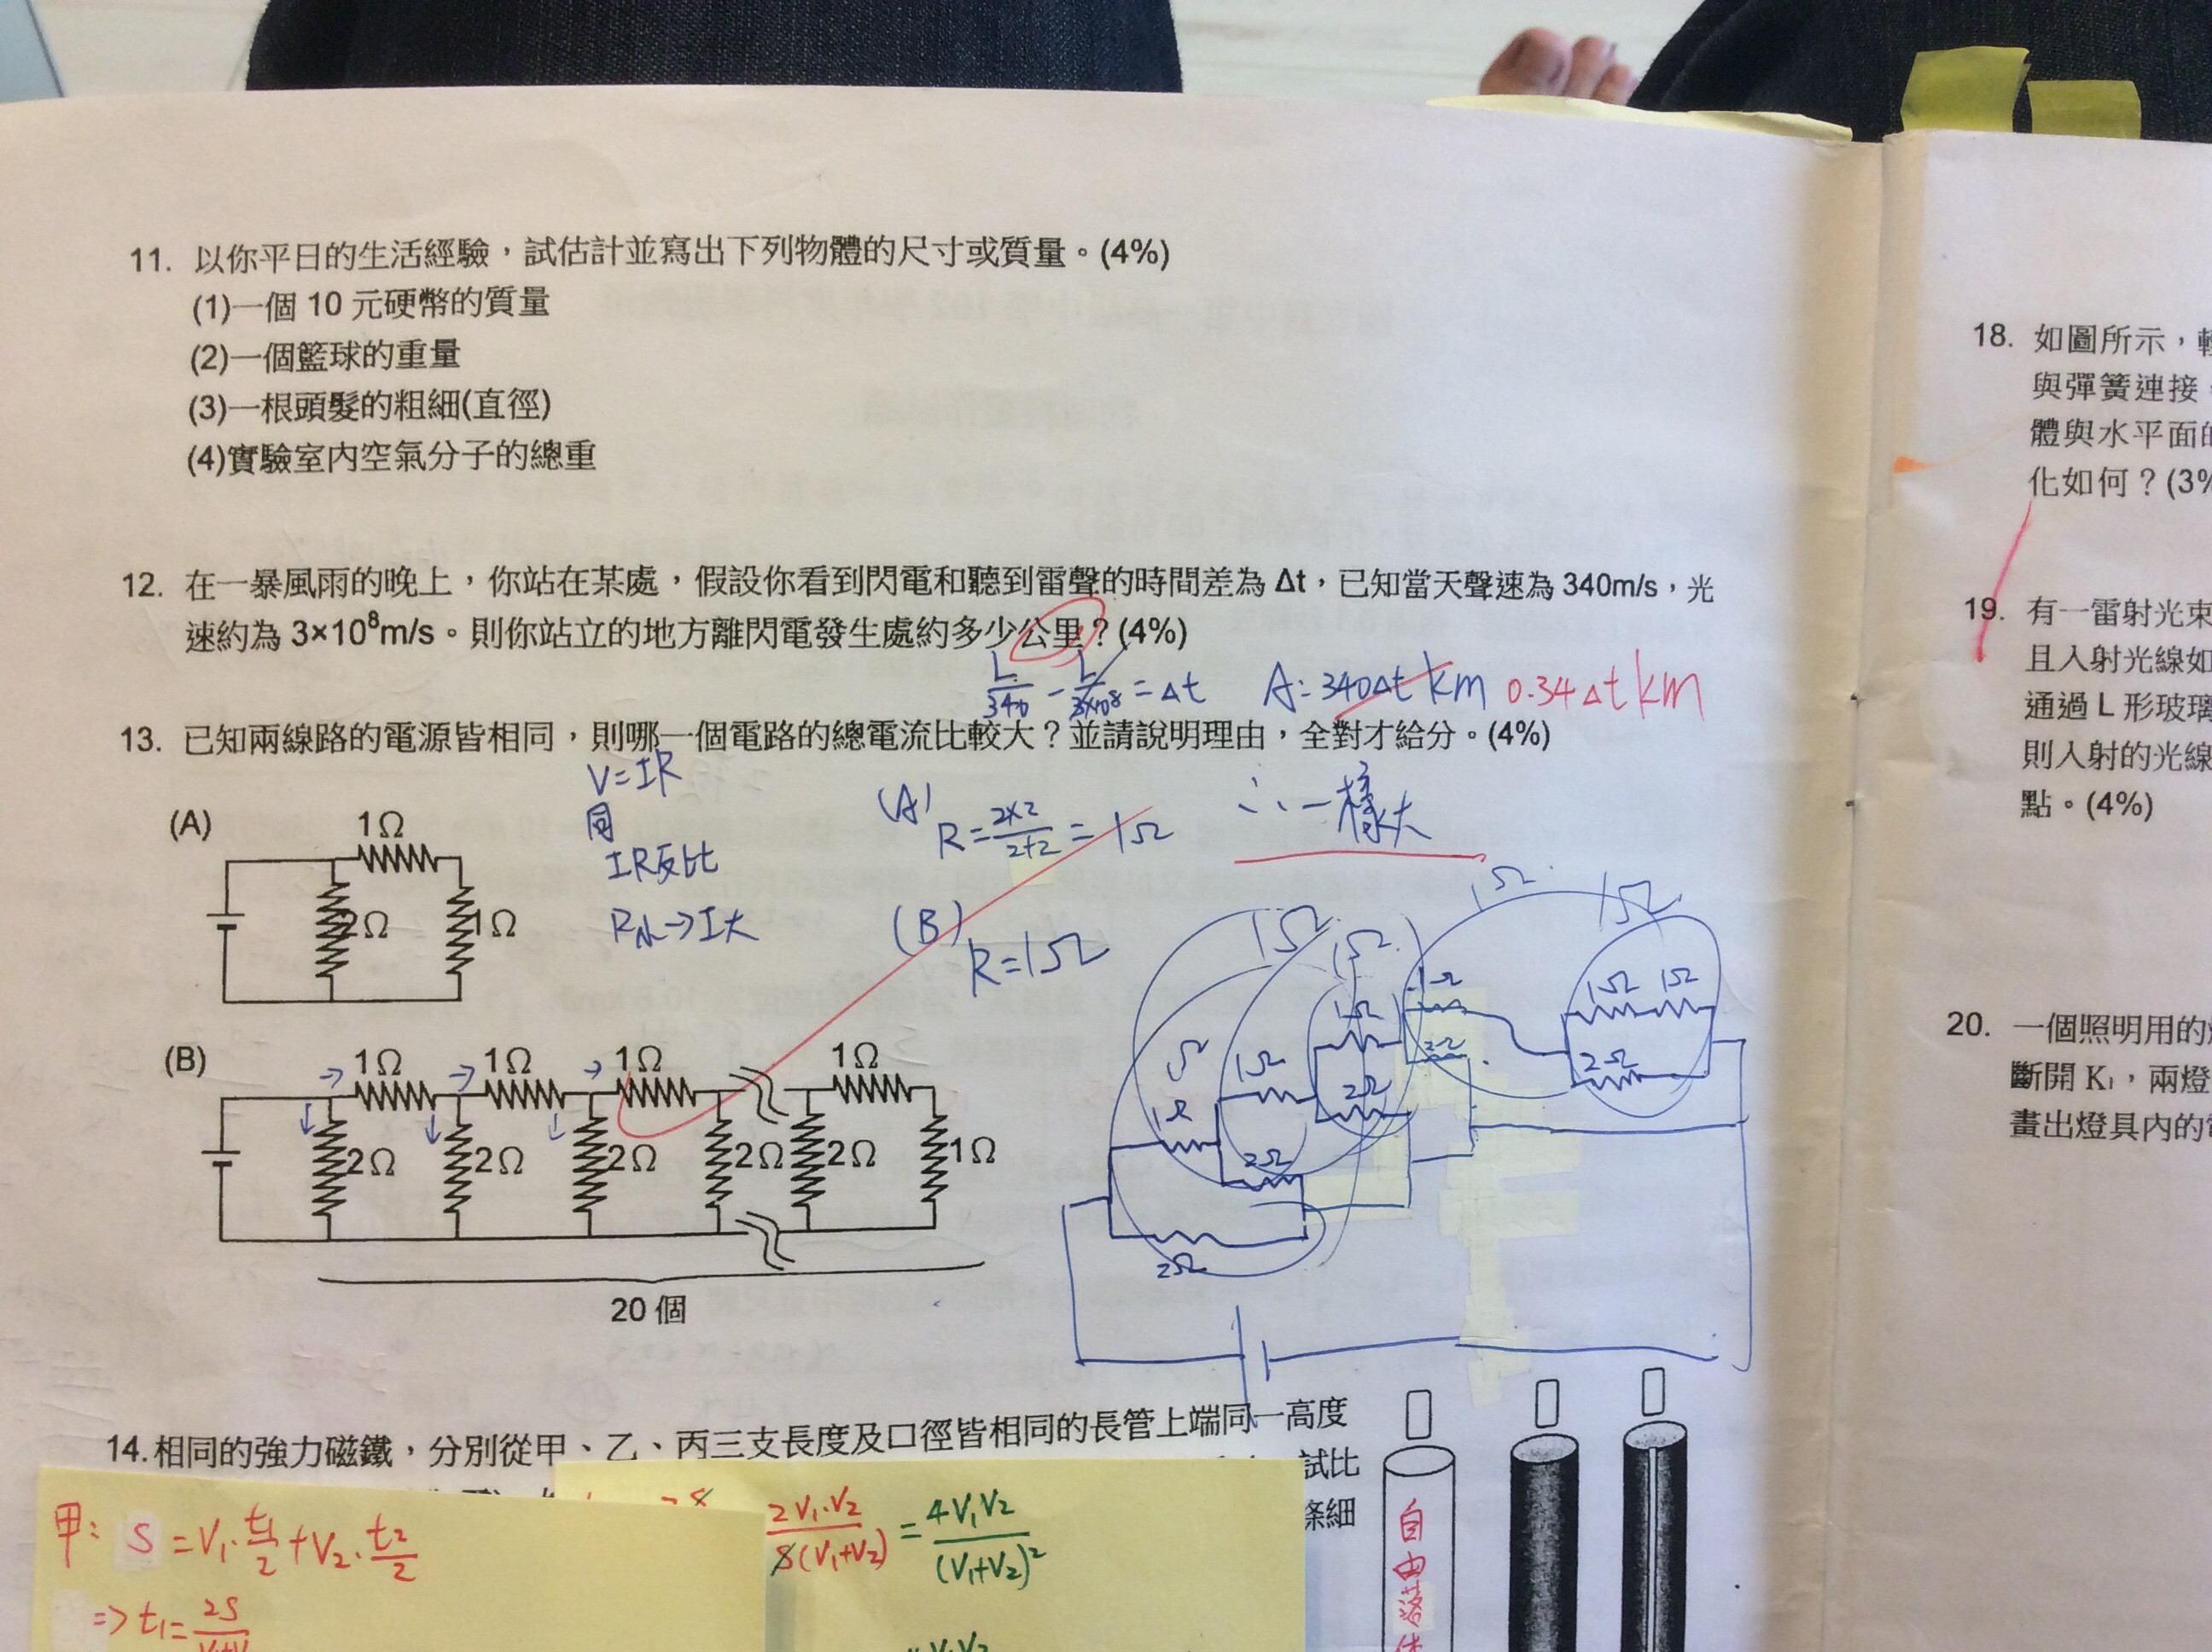 11. 以你平日的生活經驗，試估計並寫出下列物體的尺寸或質量。(4%)
(1)一個 10 元硬幣的質量
(2)一個籃球的重量
(3)一根頭髮的粗細(直徑)
(4)實驗室內空氣分子的總重
12. 在一暴風雨的晚上，你站在某處，假設你看到閃電和聽到雷聲的時間差為 Δt，已知當天聲速為 340m/s，光
速約為 3×10⁸m/s。則你站立的地方離閃電發生處約多少公里？(4%)
L/340 - L/3×10⁸ = Δt
A: 340Δt km 0.34Δt km
13. 已知兩線路的電源皆相同，則哪一個電路的總電流比較大？並請說明理由，全對才給分。(4%)
V=IR
同
IR反比
R小→I大
(A)
R=2×2/2+2=1Ω
∴一樣大
(B)
R=1Ω
(A)
1Ω
2Ω
1Ω
(B)
1Ω 1Ω 1Ω 1Ω
2Ω 2Ω 2Ω 2Ω 2Ω 1Ω
20 個
1Ω 1Ω 1Ω 1Ω
1Ω 1Ω 1Ω
1Ω 1Ω
2Ω 2Ω
2Ω
2Ω
14.相同的強力磁鐵，分別從甲、乙、丙三支長度及口徑皆相同的長管上端同一高度
試比
條細
自由落
甲: S=V₁·t₁/2+V₂·t₂/2
=> t₁=2S
2V₁·V₂/S(V₁+V₂)=4V₁V₂/(V₁+V₂)²
18. 如圖所示，
與彈簧連接
體與水平面
化如何？(3%
19. 有一雷射光束
且入射光線如
通過 L 形玻璃
則入射的光線
點。(4%)
20. 一個照明用的
斷開 K₁，兩燈
畫出燈具內的